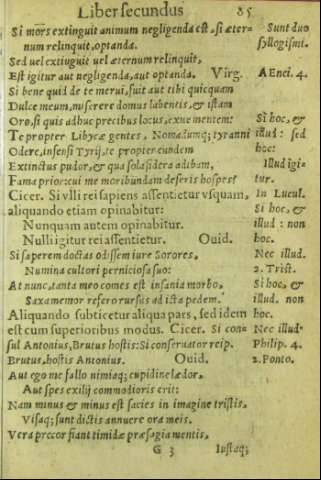 Liber secundus 85
Si mors extinguit animum negligenda est, si æter-
num relinquit, optanda.
Sed uel extiuguit uel æternum relinquit,
Est igitur aut negligenda, aut optanda. Virg.
Si bene quid de te merui, fuit aut tibi quicquam
Dulce meum, miserere domus labentis, & istam
Oro, si quis adhuc precibus locus, exue mentem:
Te propter Libycæ gentes, Nomadumq; tyranni
Odere, infensi Tyrij, te propter eundem
Extinctus pudor, & qua sola sidera adibam,
Fama prior: cui me moribundam deseris hospes?
Cicer. Si vlli rei sapiens assentietur vsquam,
aliquando etiam opinabitur:
Nunquam autem opinabitur.
Nulli igitur rei assentietur. Ouid.
Si saperem doctas odissem iure Sorores,
Numina cultori perniciosa suo:
At nunc, tanta meo comes est insania morbo,
Saxa memor refero rursus ad icta pedem.
Aliquando subticetur aliqua pars, sed idem
est cum superioribus modus. Cicer. Si con-
sul Antonius, Brutus hostis: Si conseruator reip.
Brutus, hostis Antonius. Ouid.
Aut ego me fallo nimiaq; cupidine lædor,
Aut spes exilij commodioris erit:
Nam minus & minus est facies in imagine tristis,
Visaq; sunt dictis annuere ora meis.
Vera precor fiant timidæ præsagia mentis,
G 3 Iustaq;
Sunt duo
syllogismi.
AEnei. 4.
Si hoc, &
illud: sed
hoc:
Illud igi-
tur.
In Lucul.
Si hoc, &
illud: non
hoc.
Nec illud.
2. Trist.
Si hoc, &
illud. non
hoc.
Nec illud.
Philip. 4.
2. Ponto.